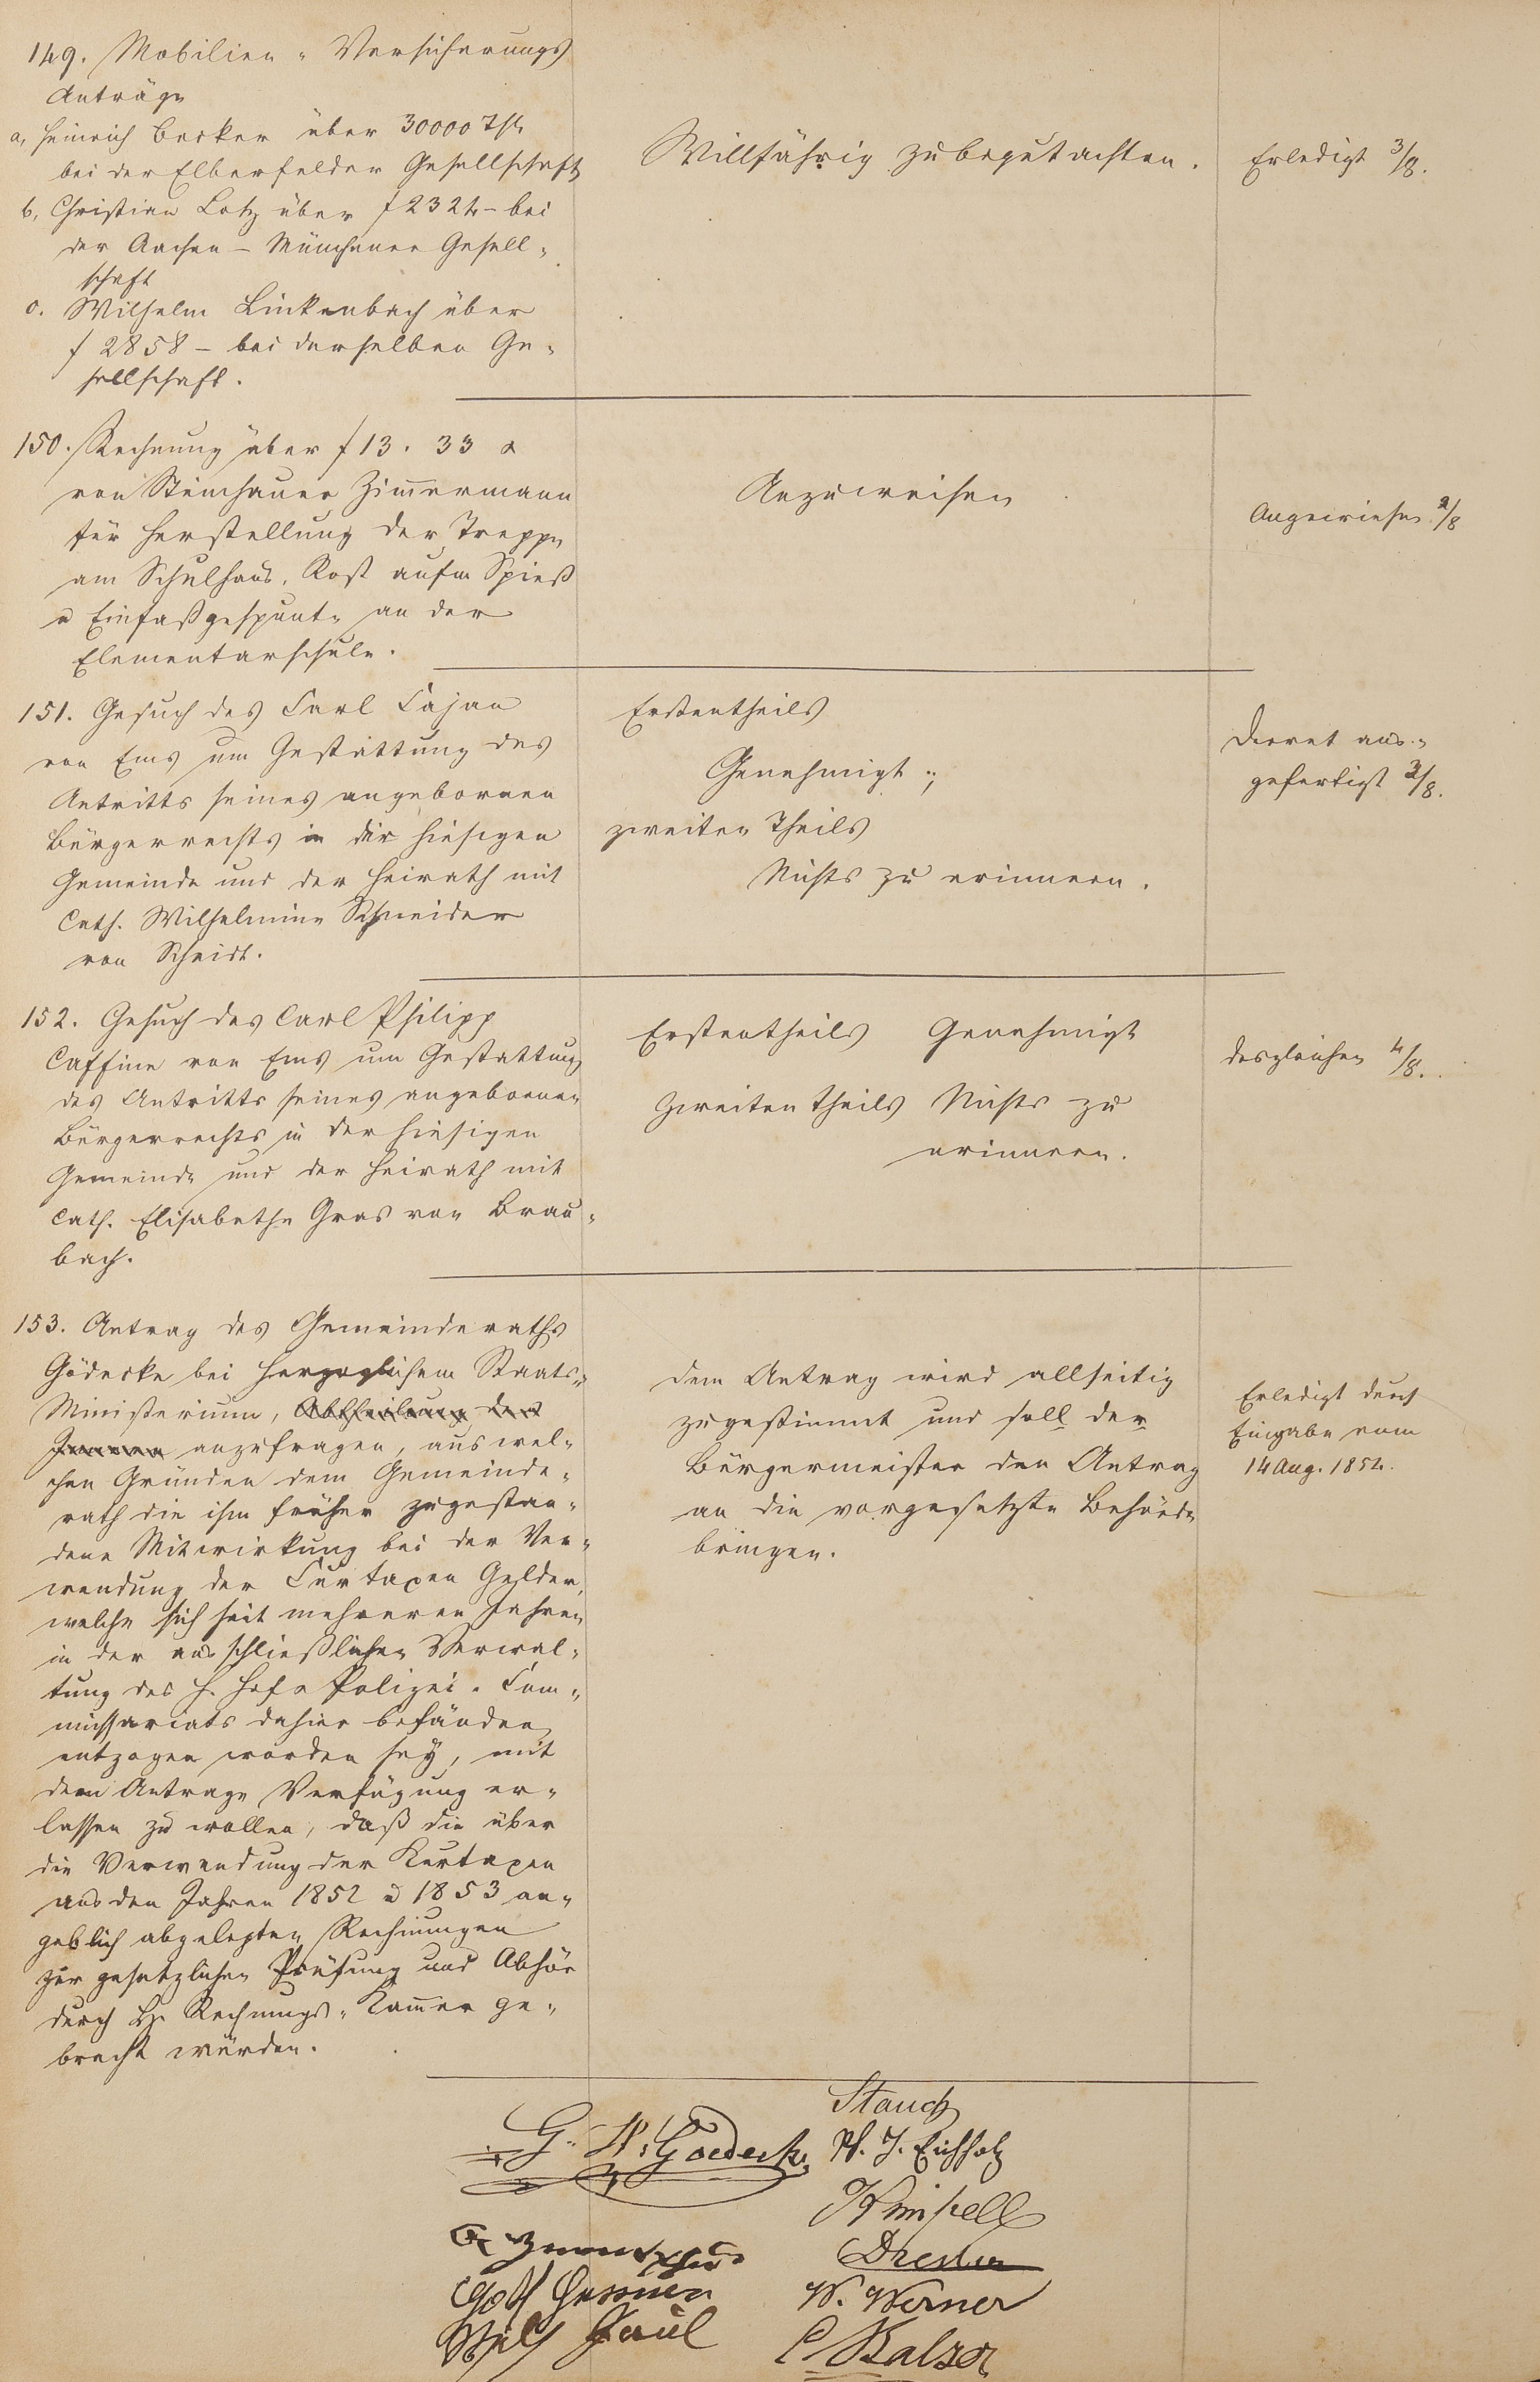 149. Mobilien-Versicherungs
Anträge
a, Heinrich Becker über 30000 Th
bei der Elberfelder Gesellschaft
b, Christian Lotz über f 2324 – bei
der Aachen – Münchener Gesell-
schaft
c. Wilhelm Linkenbach über
f 2858 – bei derselben Ge-
sellschaft.
Willfährig zu begutachten.
Erledigt 3/8.
150. Rechnung über f 13. 33 x
von Steinhauer Zim̄ermann
für Herstellung der Treppe
am Schulhaus, Rost aufm Spieß
u Einfaßgespunte an der
Elementarschule.
Anzuweisen
Angewiesen 2/8
151. Gesuch des Carl Cajan
von Ems um Gestattung des
Antritts seines angebornen
Bürgerrechts in die hiesigen
Gemeinde und der Heirath mit
Cath. Wilhelmine Schneider
von Scheidt.
Erstentheils
Genehmigt;
zweiten Theils
Nichts zu erinnern.
Decret aus-
gefertigt 3/8.
152. Gesuch des Carl Philipp
Caffine von Ems um Gestattung
des Antritts seines angebornen
Bürgerrechts in der hiesigen
Gemeinde und der Heirath mit
Cath. Elisabethe Gras von Brau-
bach.
Erstentheils Genehmigt
Zweiten theils Nichts zu
erinnern.
desgleichen 4/8.
153. Antrag des Gemeinderaths
Gödecke bei Herzoglichem Staats-
Ministerium, Abtheilung des
Innern anzufragen, aus wel-
chen Gründen dem Gemeinde-
rath die ihm früher zugestan-
dene Mitwirkung bei der Ver-
wendung der Curtaxen Gelder,
welche sich seit mehreren Jahren
in der ausschließlichen Verwal-
tung des H. Hofs Polizei-Com-
missariats dahier befänden
entzogen worden sey, mit
dem Antrage Verfügung er-
lassen zu wollen, daß die über
die Verwendung der Kurtaxen
aus den Jahren 1852 u 1853 an-
geblich abgelegten Rechnungen
zur gesetzlichen Prüfung und Abhör
durch Hz. Rechnungs-Kam̄er ge-
bracht würden.
Dem Antrag wird allseitig
zugestimmt und soll der
Bürgermeister den Antrag
an die vorgesetzte Behörde
bringen.
Erledigt durch
Eingabe vom
14 Aug. 1854.
Stauch
G. H. Goedecke
Ph. J. Eichholz
Dresler
W. Werner
Wilh Paul
C Balzer